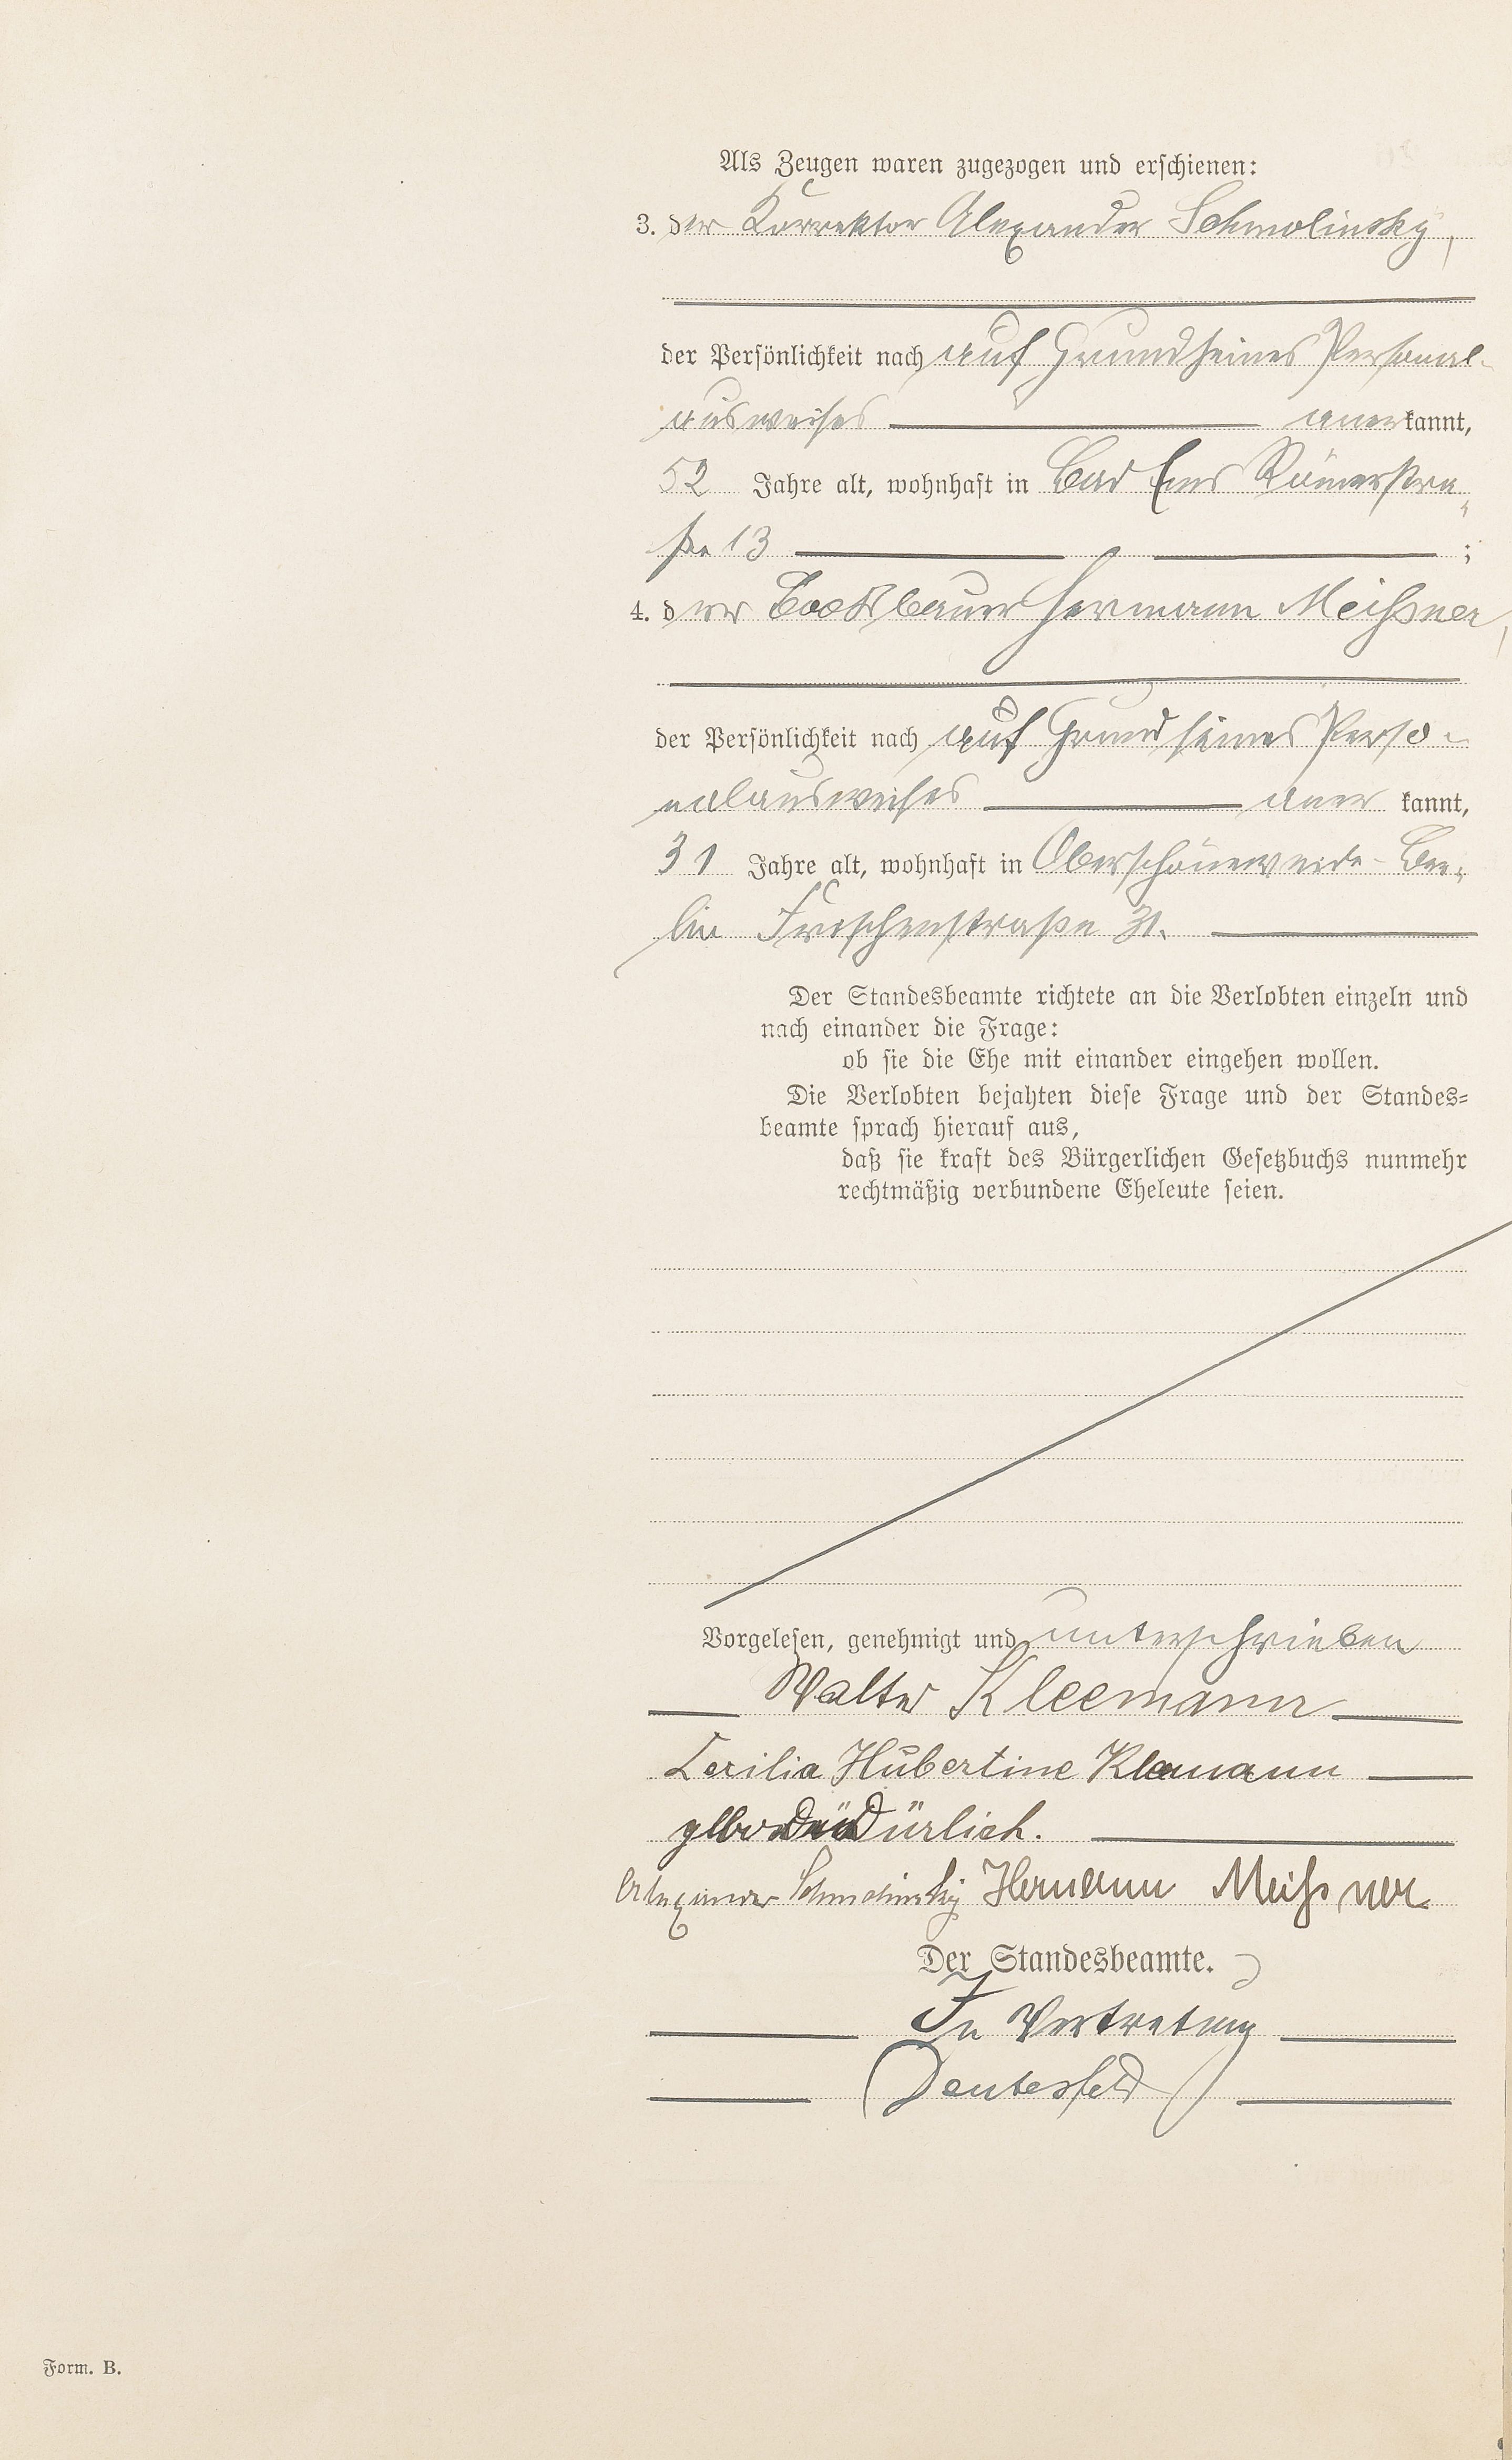 Als Zeugen waren zugezogen und erschienen:
3. der Korrektor Alexander Schmolinsky,
der Persönlichkeit nach auf Grund seines Personal-
ausweises anerkannt,
52 Jahre alt, wohnhaft in Bad Ems Römerstra-
ße 13 ;
4. der Bootsbauer Hermann Meißner,
der Persönlichkeit nach auf Grund seines Perso-
nalausweises aner kannt,
31 Jahre alt, wohnhaft in Oberschöneweide-Ber-
lin 31.
Der Standesbeamte richtete an die Verlobten einzeln und
nach einander die Frage:
ob sie die Ehe mit einander eingehen wollen.
Die Verlobten bejahten diese Frage und der Standes-
beamte sprach hierauf aus,
daß sie kraft des Bürgerlichen Gesetzbuchs nunmehr
rechtmäßig verbundene Eheleute seien.
Vorgelesen, genehmigt und unterschrieben
Walter Kleemann
Cecilia Hubertine Kleemann
Dürlich.
Alexander Schmolinsky Hermann Meißner
Der Standesbeamte.
In Vertretung
Form. B.